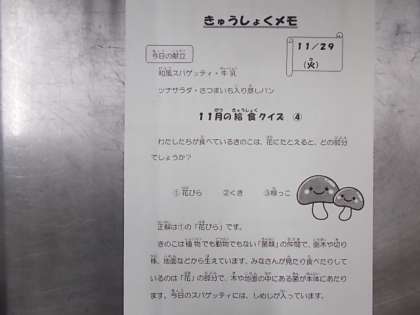 きゅうしょくメモ
11／29
（火）
今日の献立
和風スパゲッティ・牛乳
ツナサラダ・さつまいも入り蒸しパン
11月の給食クイズ ④
わたしたちが食べているきのこは、花にたとえると、どの部分
でしょうか？
①花びら ②くき ③根っこ
正解は①の「花びら」です。
きのこは植物でも動物でもない「菌類」の仲間で、倒木や切り
株、地面などから生えています。みなさんが見たり食べたりして
いるのは「花」の部分で、木や地面の中にある菌が本体にあたり
ます。今日のスパゲッティには、しめじが入っています。